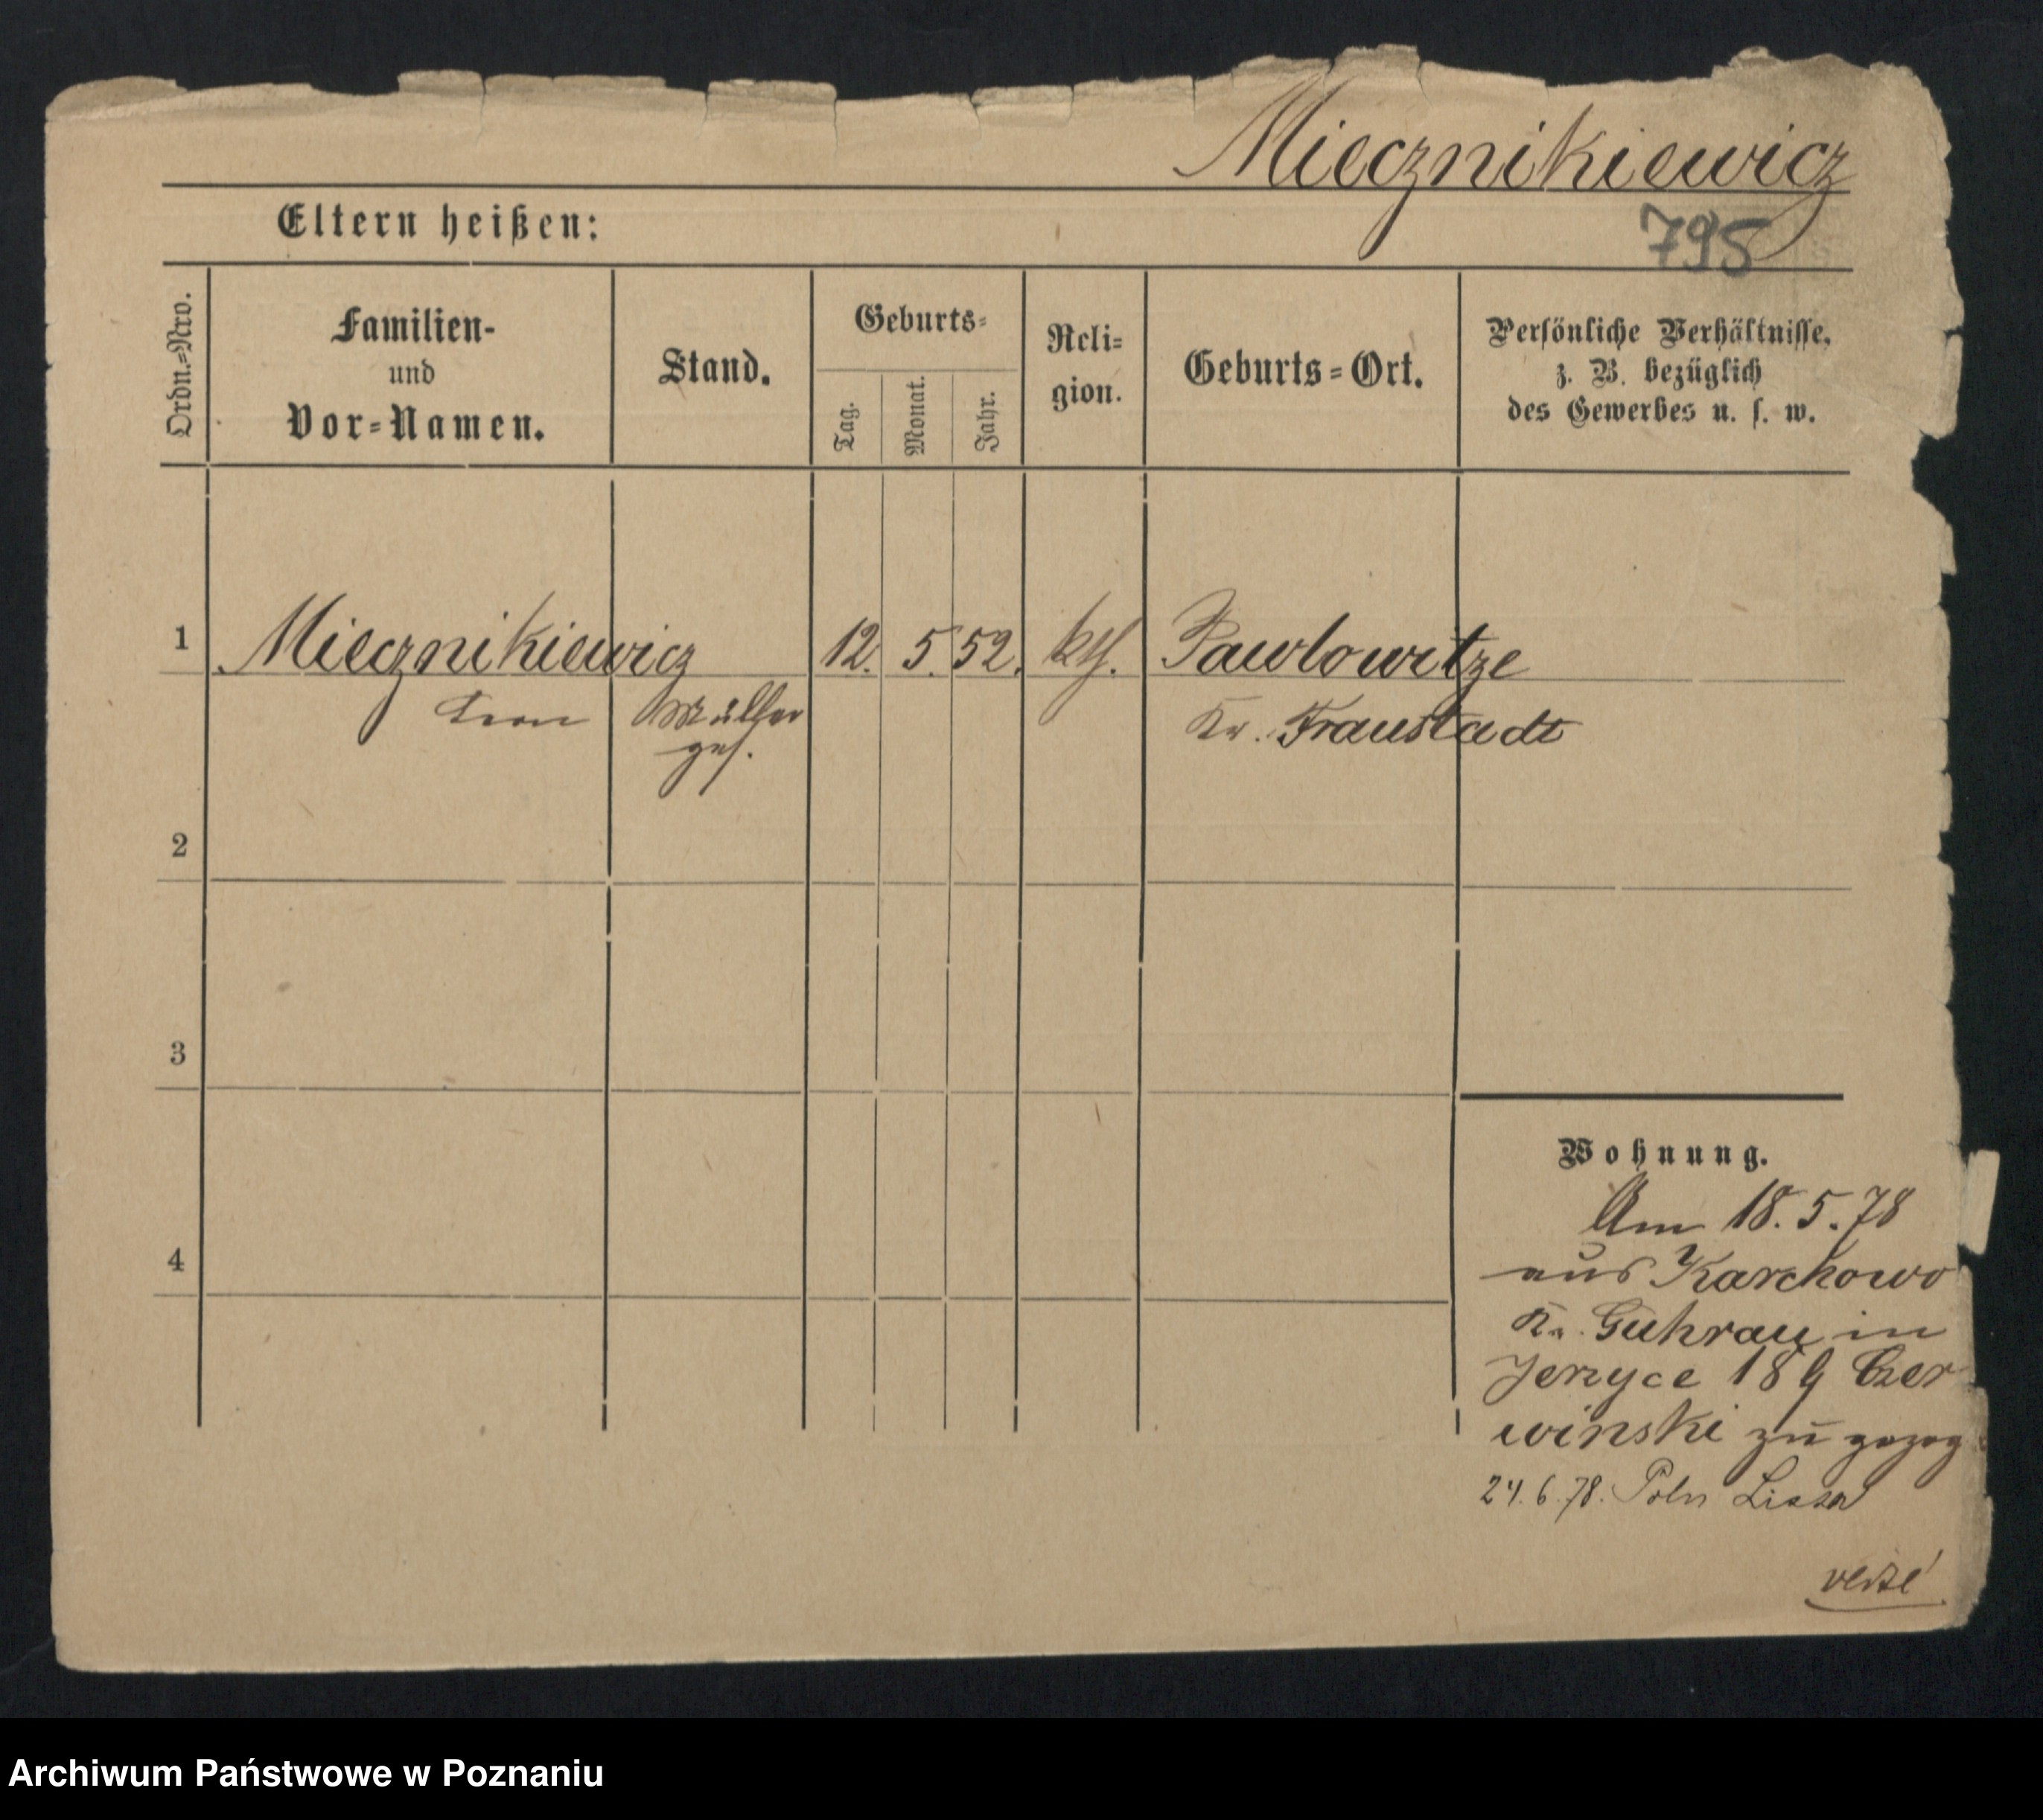 Miecznikiewicz
Eltern heißen:
795
Ordn.=Nro.
Familien-
und
Vor=Namen.
Stand.
Geburts=
Tag.
Monat.
Jahr.
Reli=
gion.
Geburts=Ort.
Persönliche Verhältnisse,
z. B. bezüglich
des Gewerbes u. s. w.
1 Miecznikiewicz 12. 5. 52. kth. Pawlowitze
Leon Müller Kr. Fraustadt
ges.
2
3
4
Wohnung.
Am 18.5.78
aus Karchowo
Kr. Guhrau in
Jerzyce 189 Czer
winski zu gezog
24.6.78. Poln Lissa